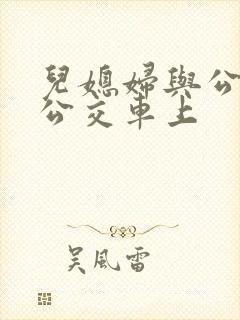 兒媳婦與公
公交車上
吴風雷